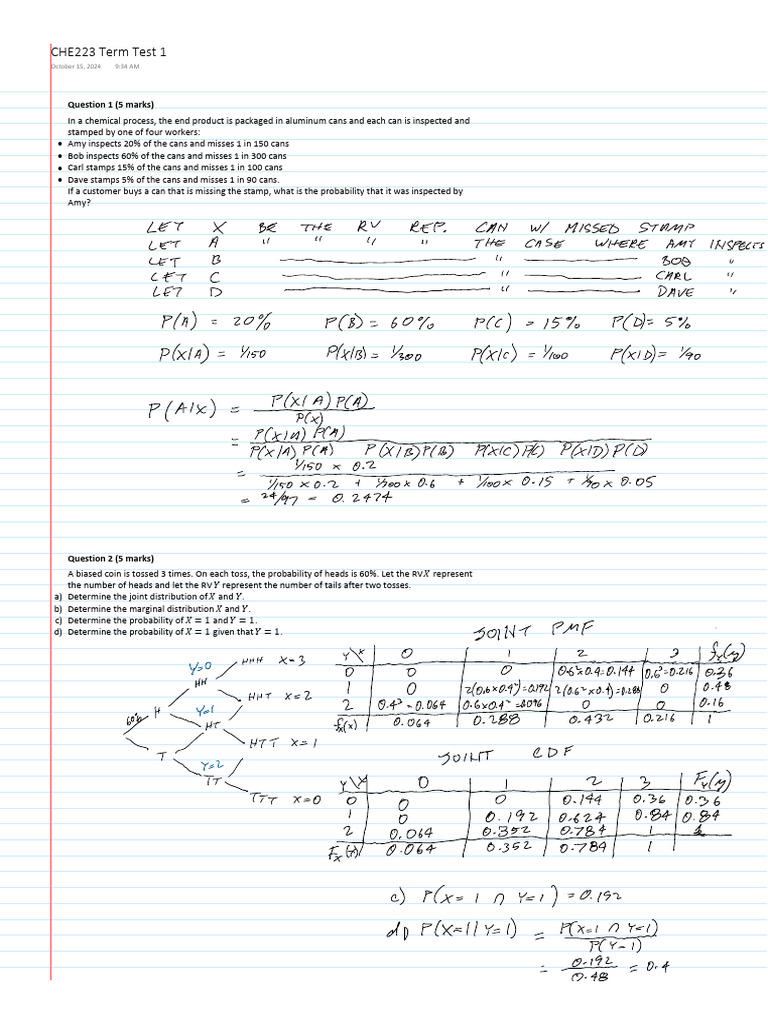 CHE223 Term Test 1
October 15, 2024 9:34 AM
Question 1 (5 marks)
In a chemical process, the end product is packaged in aluminum cans and each can is inspected and
stamped by one of four workers:
• Amy inspects 20% of the cans and misses 1 in 150 cans
• Bob inspects 60% of the cans and misses 1 in 300 cans
• Carl stamps 15% of the cans and misses 1 in 100 cans
• Dave stamps 5% of the cans and misses 1 in 90 cans.
If a customer buys a can that is missing the stamp, what is the probability that it was inspected by
Amy?
LET X BE THE RV REP. CAN W/ MISSED STAMP
LET A " " " " THE CASE WHERE AMY INSPECTS
LET B " BOB "
LET C " CARL "
LET D " DAVE "
P(A) = 20% P(B) = 60% P(C) = 15% P(D) = 5%
P(X|A) = 1/150 P(X|B) = 1/300 P(X|C) = 1/100 P(X|D) = 1/90
P(A|X) = P(X|A) P(A)
P(X)
= P(X|A) P(A)
P(X|A) P(A) P(X|B) P(B) P(X|C) P(C) P(X|D) P(D)
= 1/150 × 0.2
1/150 × 0.2 + 1/300 × 0.6 + 1/100 × 0.15 + 1/90 × 0.05
= 24/97 = 0.2474
Question 2 (5 marks)
A biased coin is tossed 3 times. On each toss, the probability of heads is 60%. Let the RV X represent
the number of heads and let the RV Y represent the number of tails after two tosses.
a) Determine the joint distribution of X and Y.
b) Determine the marginal distribution X and Y.
c) Determine the probability of X = 1 and Y = 1.
d) Determine the probability of X = 1 given that Y = 1.
JOINT PMF
Y\X 0 1 2 3 fY(y)
0 0 0 0.6²×0.4=0.144 0.6³=0.216 0.36
1 0 2(0.6×0.4²)=0.192 2(0.6²×0.4)=0.288 0 0.48
2 0.4³=0.064 0.6×0.4²=0.096 0 0 0.16
fX(x) 0.064 0.288 0.432 0.216 1
Y=0 HHH X=3
HH
HHT X=2
60% H Y=1
HT
HTT X=1
T Y=2
TT
TTT X=0
JOINT CDF
Y\X 0 1 2 3 FY(y)
0 0 0 0.144 0.36 0.36
1 0 0.192 0.624 0.84 0.84
2 0.064 0.352 0.784 1 1
FX(x) 0.064 0.352 0.784 1
c) P(X=1 ∩ Y=1) = 0.192
d) P(X=1|Y=1) = P(X=1 ∩ Y=1)
P(Y=1)
= 0.192 = 0.4
0.48